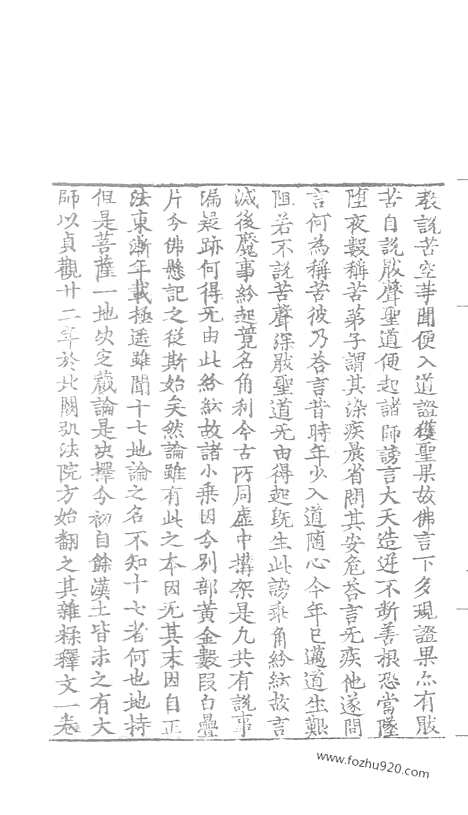 教說苦空等聞便入道證獲聖果故佛言下多現證果亦有厭
苦自說厭聲聖道便起諸師謗言大天造逆不斷善根恐當墜
墮夜數稱苦弟子謂其染疾晨省問其安危答言无疾他遂問
言何為稱苦彼乃答言昔時年少入道隨心今年已邁道生艱
阻若不說苦聲深厭聖道无由得起既生此謗乖角紛紜故言
滅後魔事紛起競名角利今古所同虛中搆架是九共有說事
漏疑跡何得无由此紛紜故諸小乘因兮別部黃金數段白疊
片今佛懸記之從斯始矣然論雖有此之本因无其末因自正
法東漸年載極遥雖聞十七地論之名不知十七者何也地持
但是菩薩一地決定藏論是決擇今初自餘漢土皆未之有大
師以貞觀廿二年於北闕弘法院方始翻之其雜糅釋文一卷
www.fozhu920.com